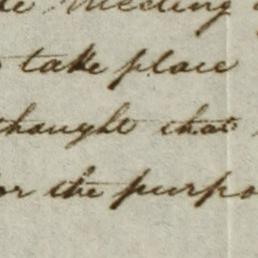 Meeting
take place
thought that
for the purpo